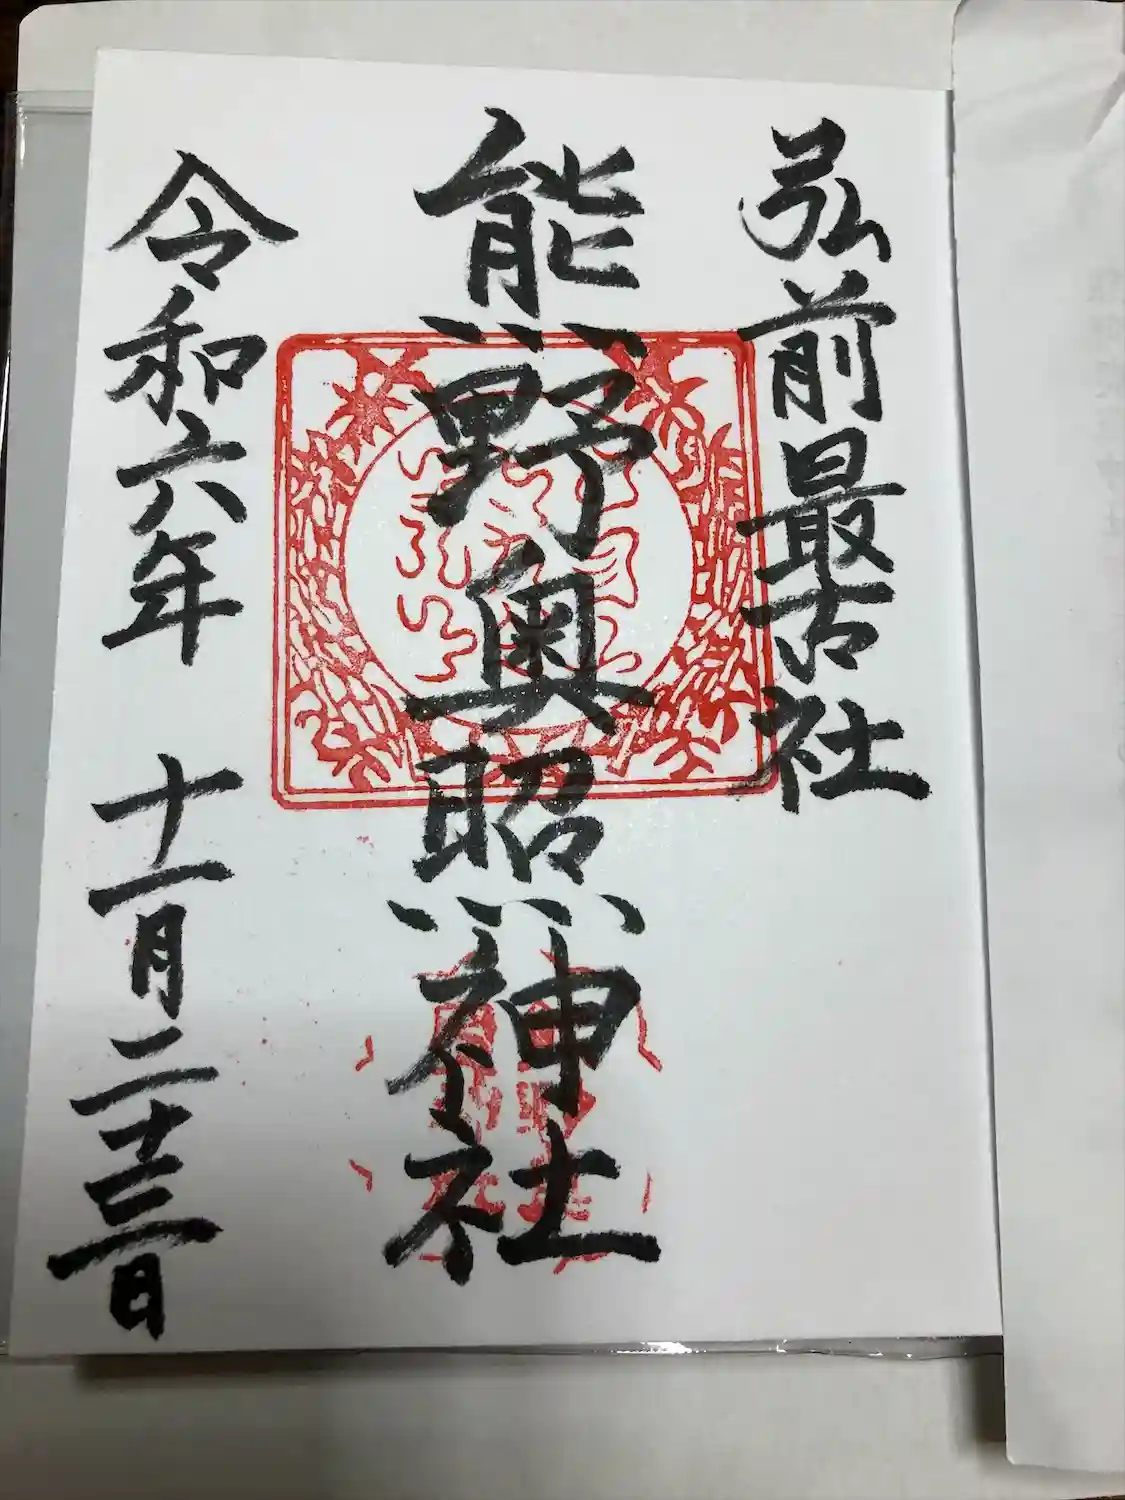 弘前最古社
熊野奥照神社
令和六年 十一月二十三日